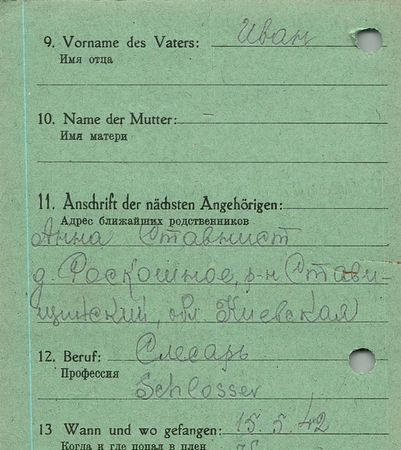 9. Vorname des Vaters: Иван
Имя отца
10. Name der Mutter:
Имя матери
11. Anschrift der nächsten Angehörigen:
Адрес ближайших родственников
Анна Ставнист
д. Роскошное, р-н Стави-
щинский, обл. Киевская
12. Beruf: Слесарь
Профессия
Schlosser
13 Wann und wo gefangen: 15. 5. 42
Когда и где попал в плен